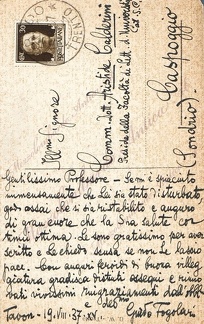 Ill.mo Signore
Comm. Dott. Aristide Calderini
Preside della Facoltà di Lett. A. Università
Caspoggio
Sondrio
Gentilissimo Professore - Sono spiaciuto
immensamente che Lei sia stato disturbato,
godo assai che si sia ristabilito e auguro
di gran cuore che la Sua salute con
tinui ottima. Le sono gratissimo per aver
scritto e Le chiedo scusa se non Le lascio
pace. Con auguri fervidi di buona villeg
giatura gradisca distinti ossequi e rinno
vati vivissimi ringraziamenti dall'obbl
Tavon - 19. VIII - 37. XV Guido Fogolari